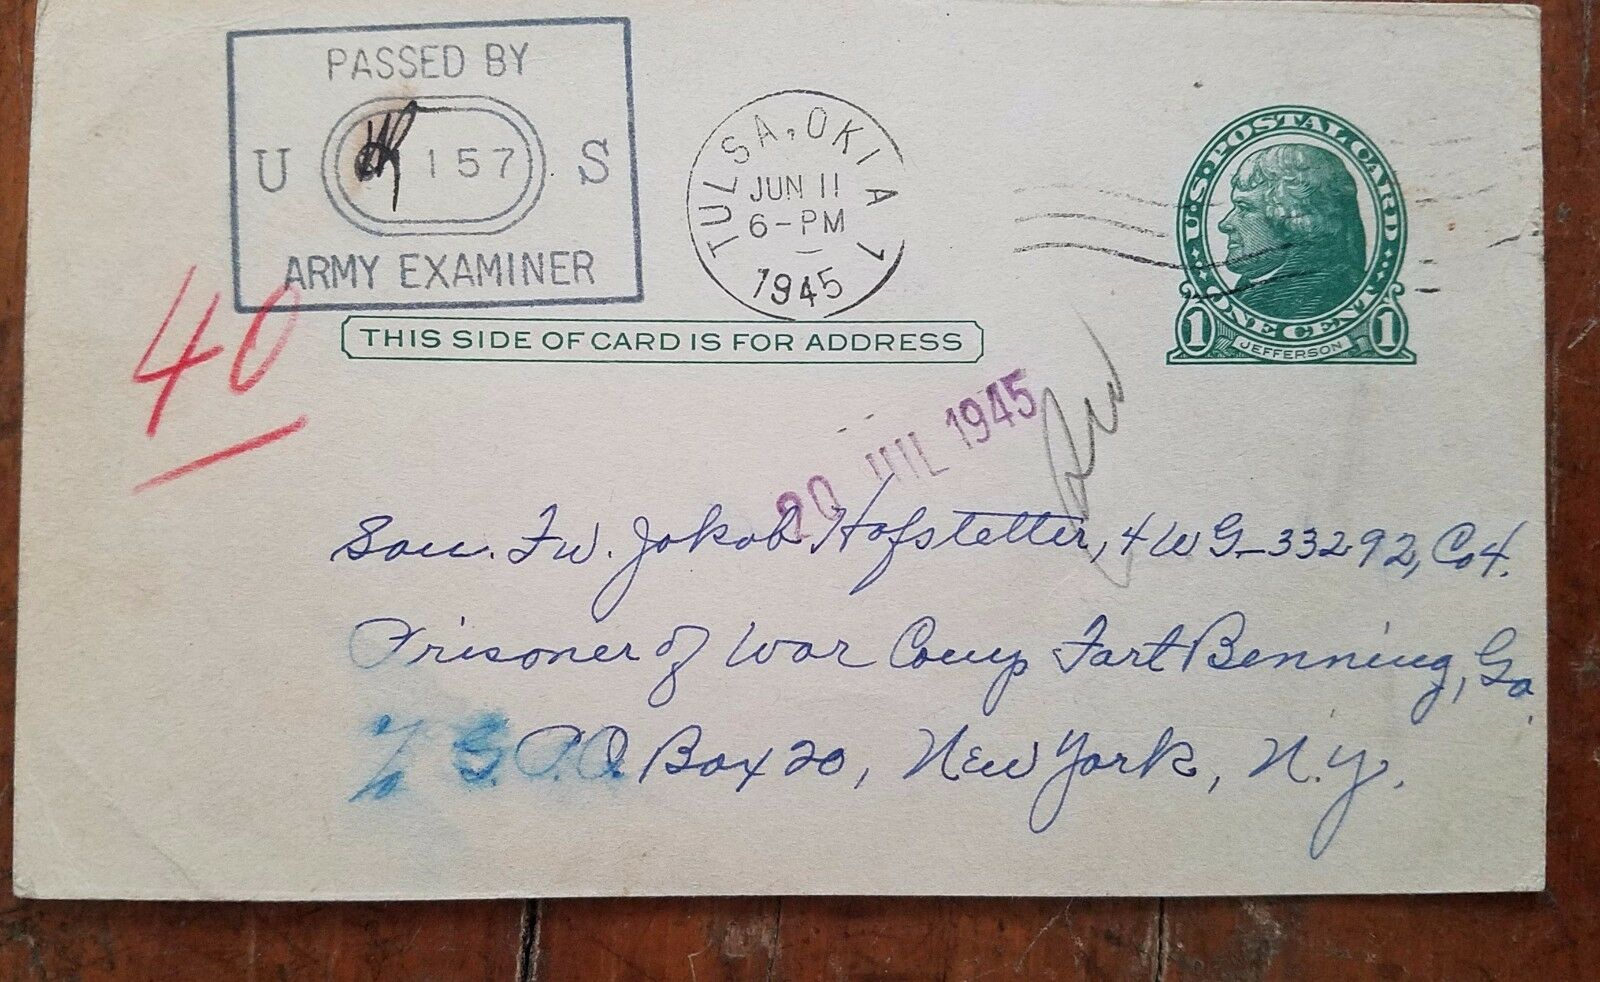 PASSED BY
U 157 S
ARMY EXAMINER
TULSA, OKLA 1
JUN 11
6-PM
1945
U.S. POSTAL CARD
1 ONE CENT 1
JEFFERSON
THIS SIDE OF CARD IS FOR ADDRESS
40
20 JUL 1945
San. Fw. Jakob Hofstetter, 4WG-33292, Co 4.
Prisoner of War Camp Fort Benning, Ga.
c/o G.P.O. Box 20, New York, N.Y.